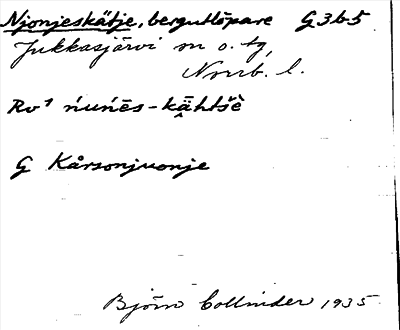 Njonjeskätje, bergutlöpare G3b5
Jukkasjärvi sn o. tg,
Norrb. l.
Rv¹ ńuńēs-kä̭htšè
G Kårsonjuonje
Björn Collinder 1935